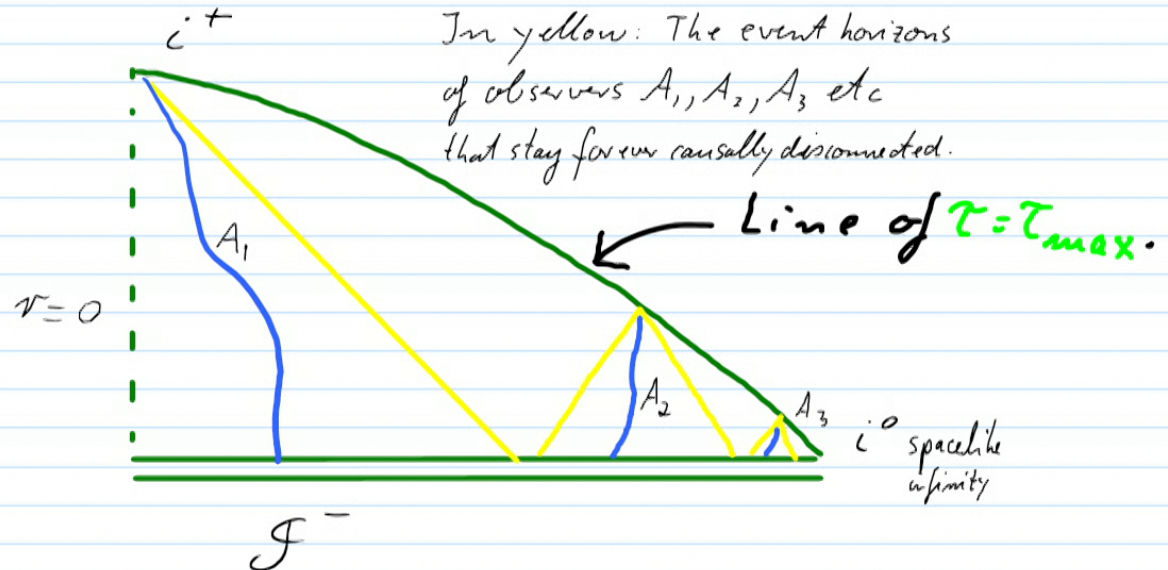 i⁺
In yellow: The event horizons
of observers A₁, A₂, A₃ etc
that stay forever causally disconnected.
Line of τ=τmax.
A₁
r=0
A₂
A₃
i⁰ spacelike
infinity
𝒥⁻